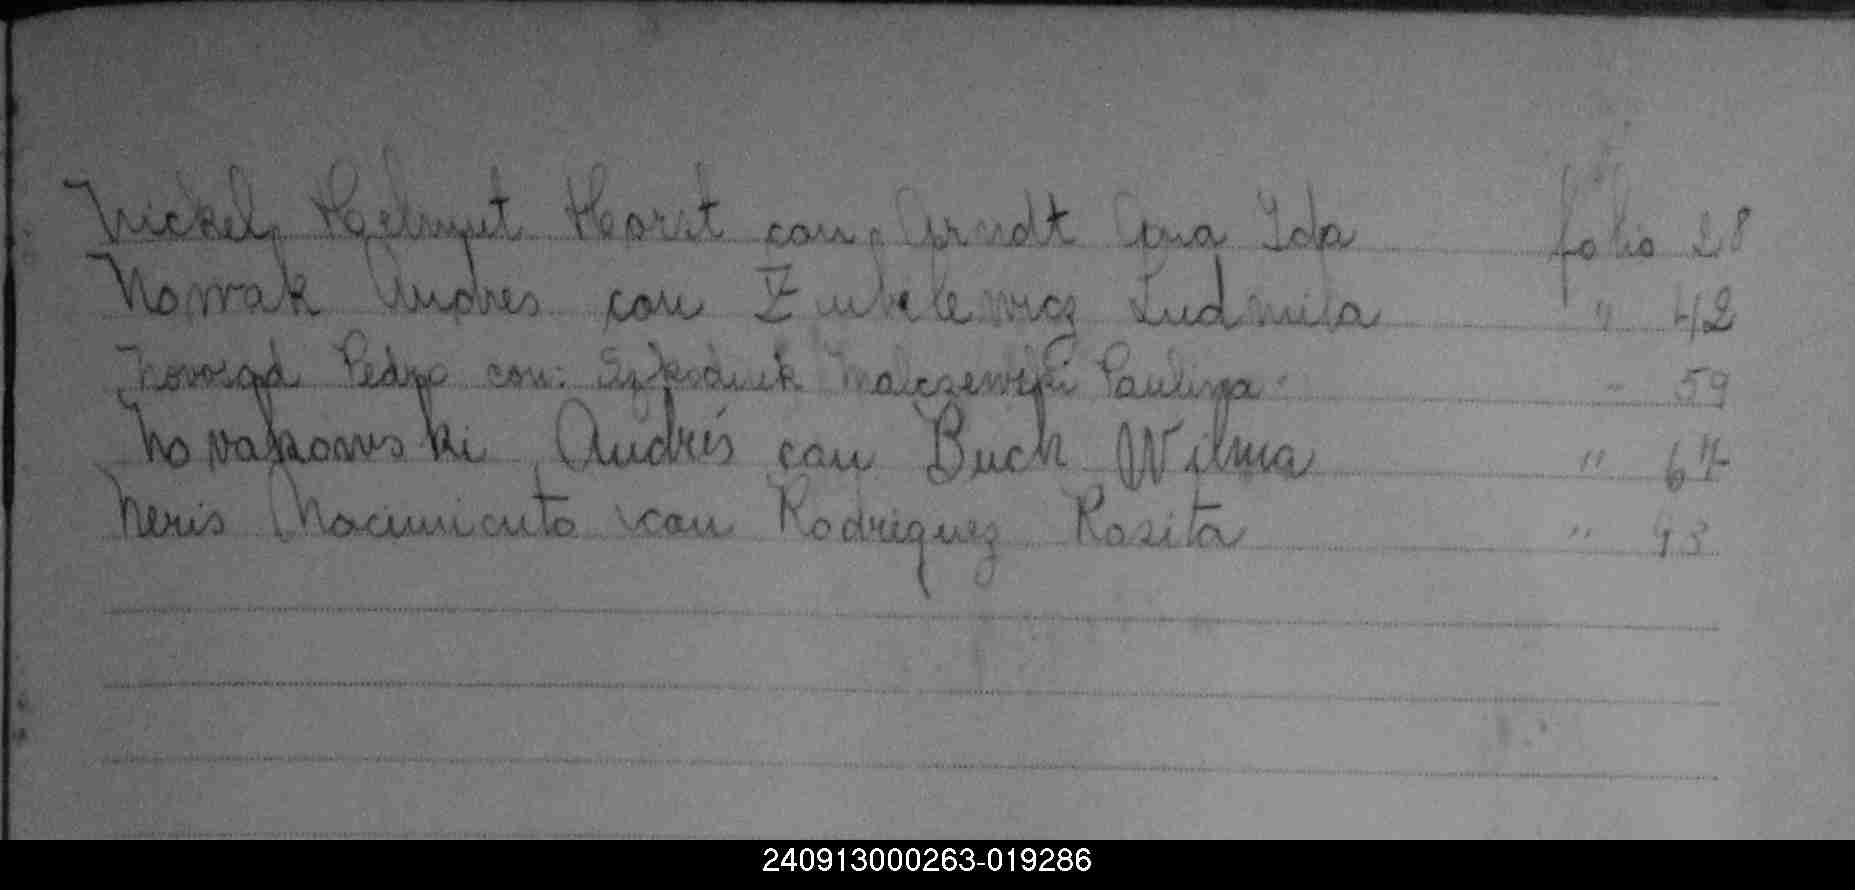 Nickel, Helmut Horst con, Arndt Ana Ida folio 28
Nowak Andres con Zubelewicz Ludmila " 42
Pedro con: Szkodnek Malczewski Paulina. " 59
Novakowski Andrés con Buch Wilma " 67
Neris Nacimiento con Rodriguez Rosita " 93
240913000263-019286